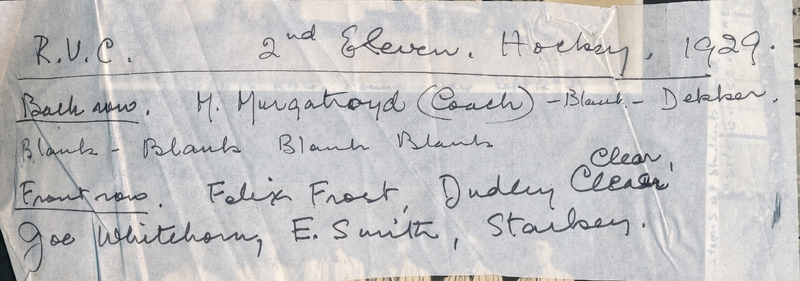 R.V.C. 2nd Eleven. Hockey. 1929.
Back row. M. Murgatroyd (Coach) - Blank - Dekker.
Blank - Blank Blank Blank
Clear
Front row. Felix Frost, Dudley
Joe Whitehorn, E. Smith, Starkey.